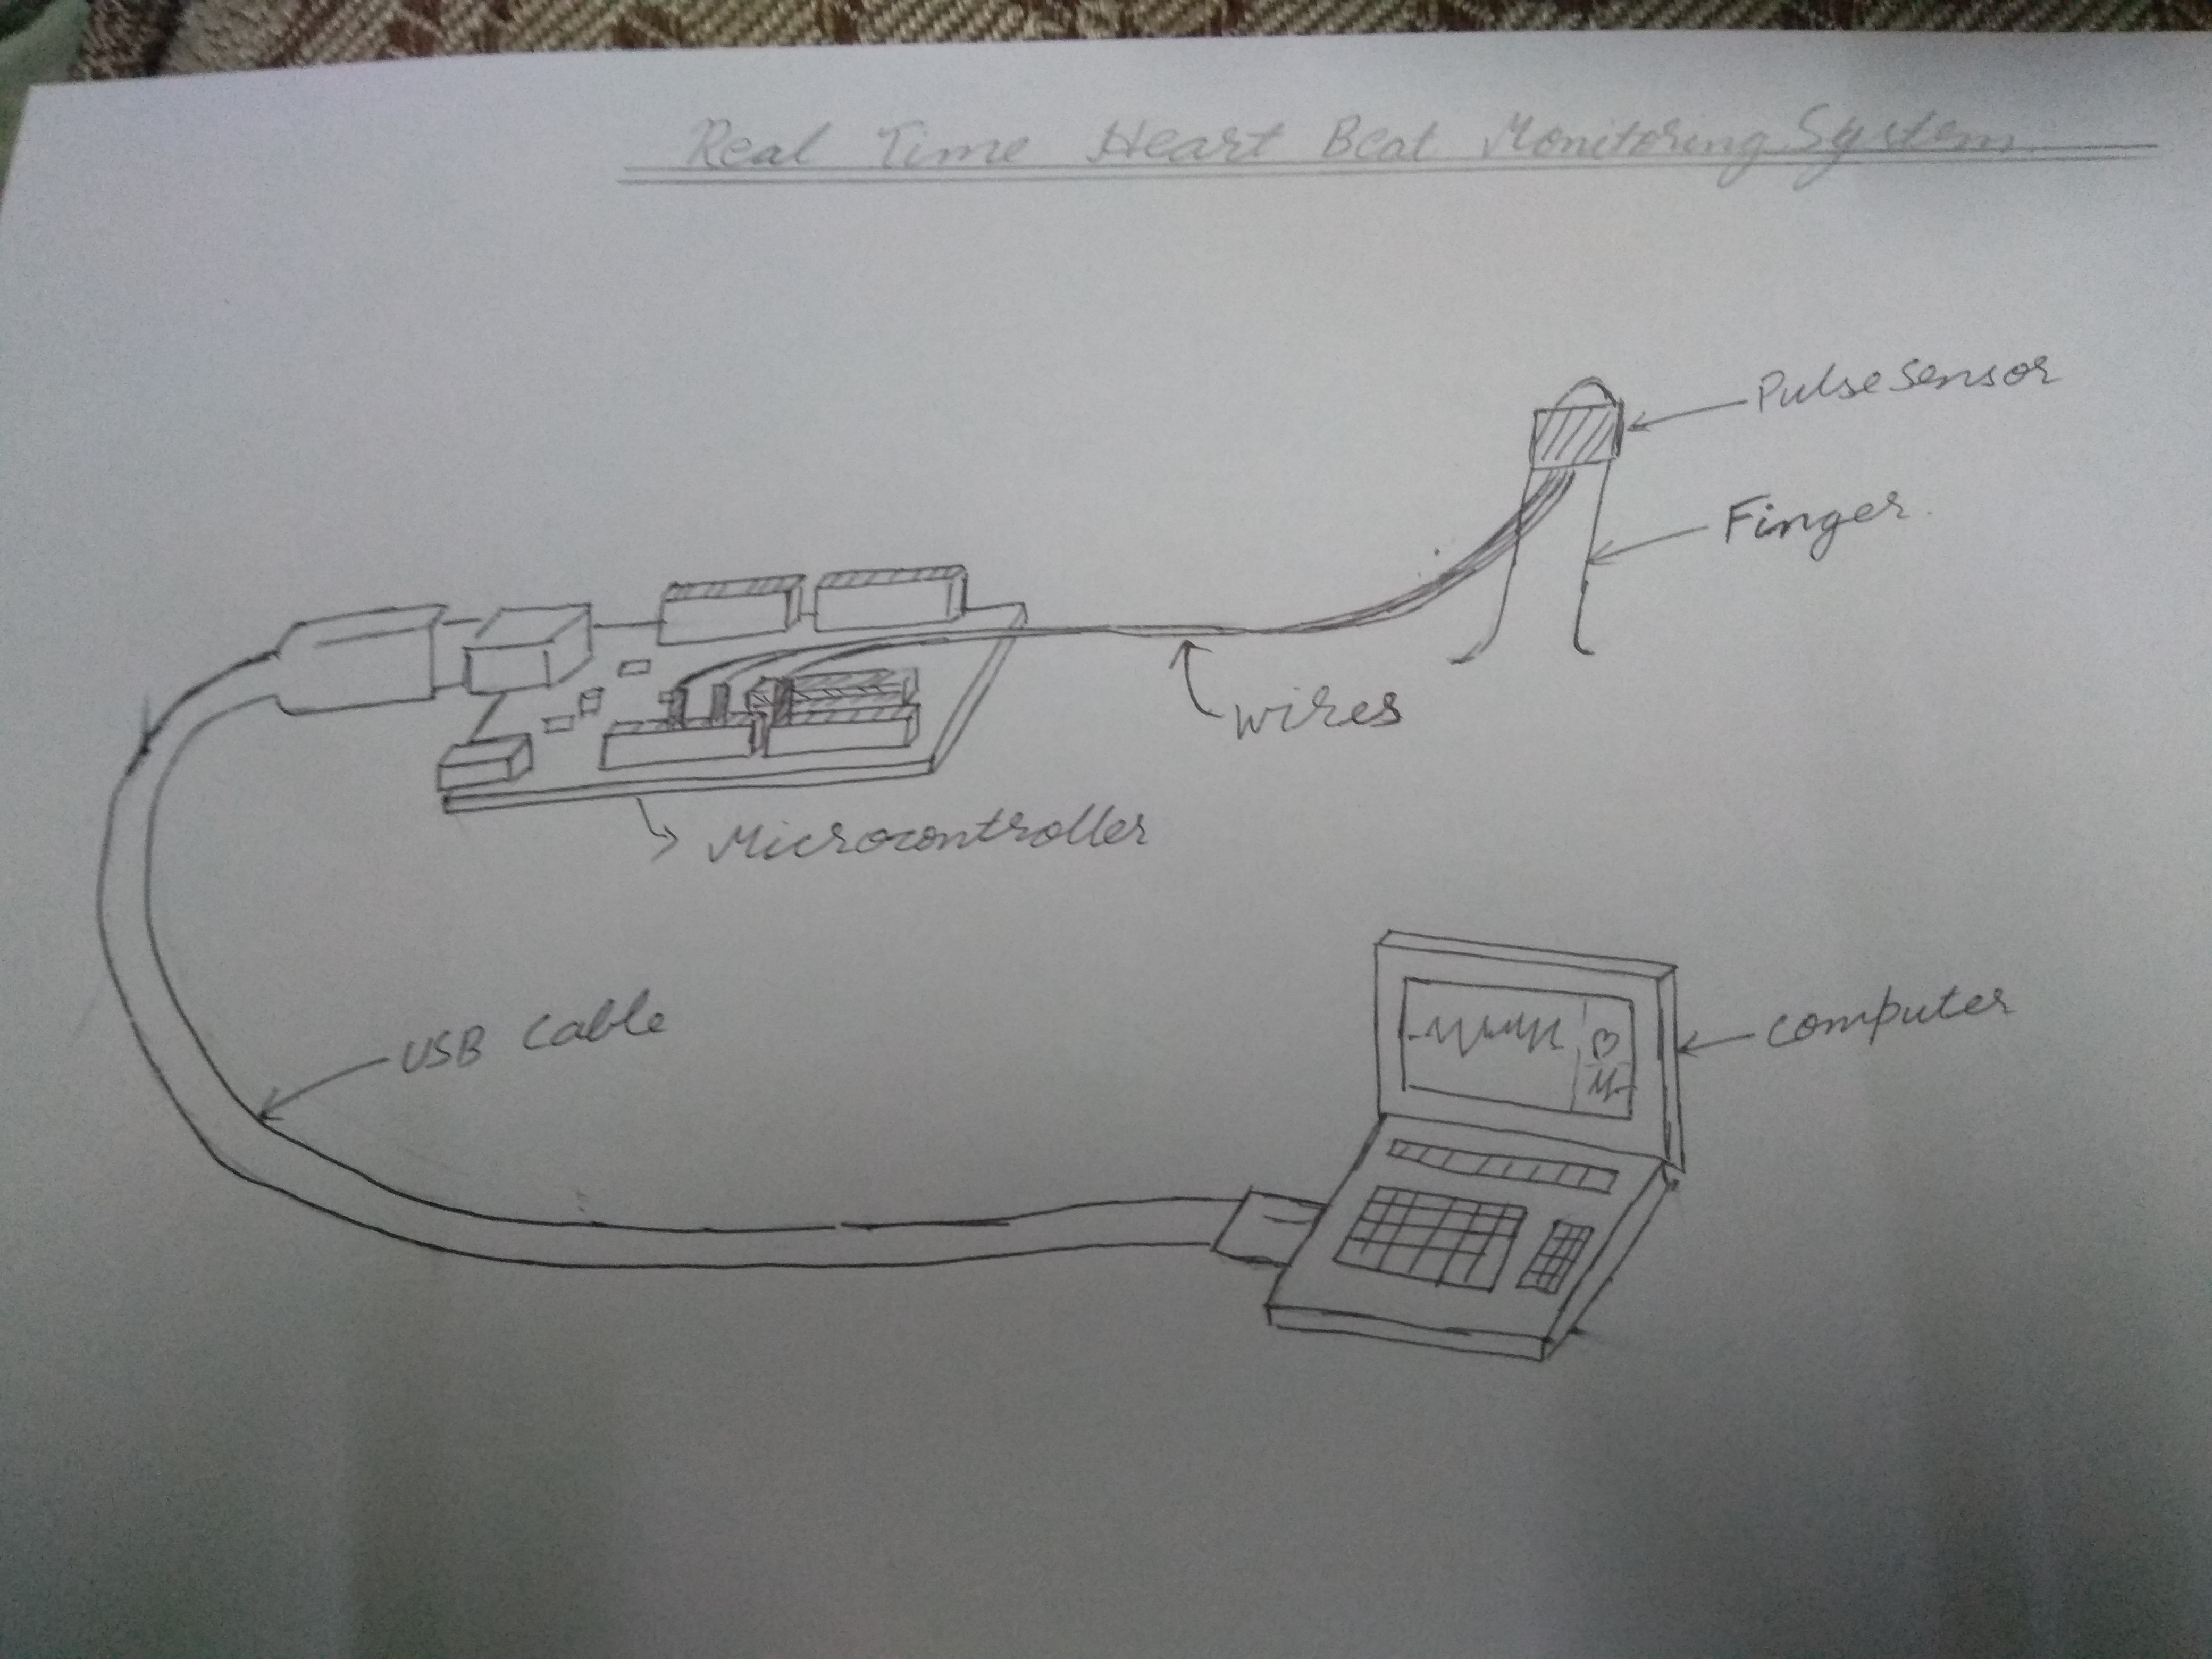 Real Time Heart Beat Monitoring System
Pulse sensor
Finger
wires
Microcontroller
USB Cable
Computer